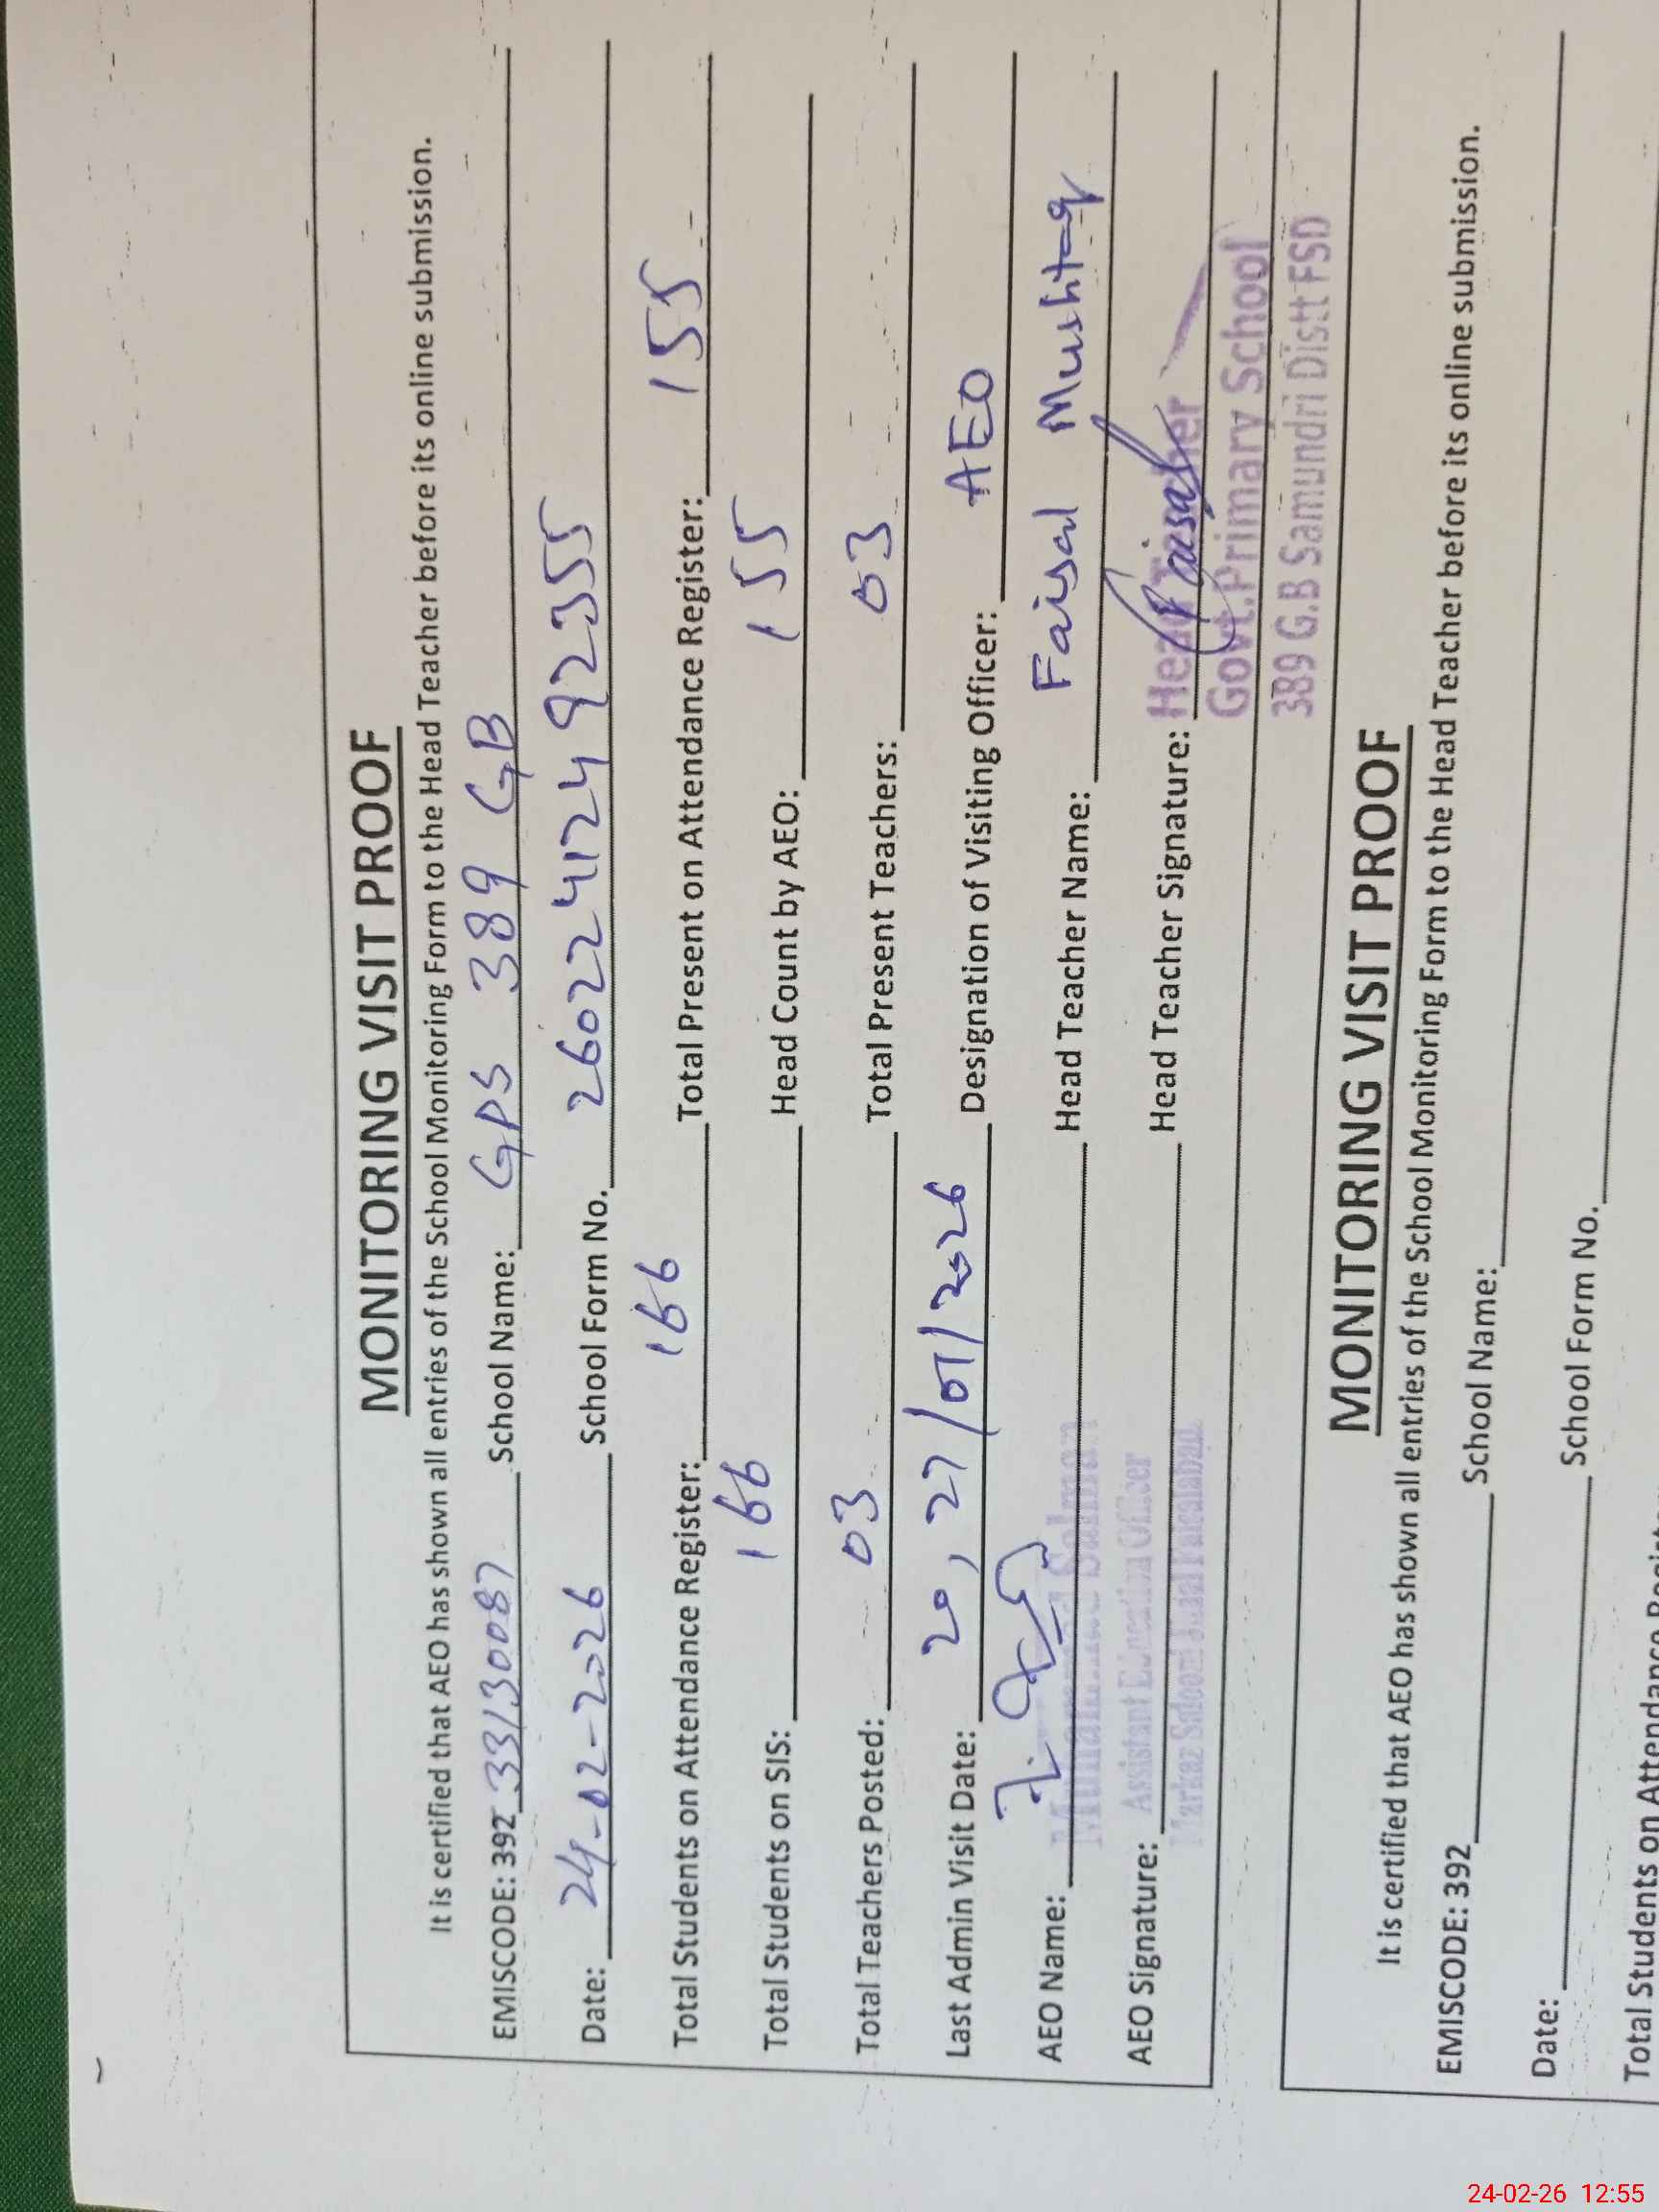 MONITORING VISIT PROOF
It is certified that AEO has shown all entries of the School Monitoring Form to the Head Teacher before its online submission.
EMISCODE: 392 33130087 School Name: GPS 389 GB
Date: 24-02-2026 School Form No. 26022411249 2355
Total Students on Attendance Register: 166 Total Present on Attendance Register: 155
Total Students on SIS: 166 Head Count by AEO: 155
Total Teachers Posted: 03 Total Present Teachers: 03
Last Admin Visit Date: 20, 27/01/2026 Designation of Visiting Officer: AEO
AEO Name: Muhammad Salman Head Teacher Name: Faisal Mushtaq
Assistant Education Officer
AEO Signature: Head Teacher Signature: Faisal
Head Teacher
Govt.Primary School
389 G.B Samundri Distt FSD
MONITORING VISIT PROOF
It is certified that AEO has shown all entries of the School Monitoring Form to the Head Teacher before its online submission.
EMISCODE: 392 School Name:
Date: School Form No.
Total Students on Attendance
24-02-26 12:55